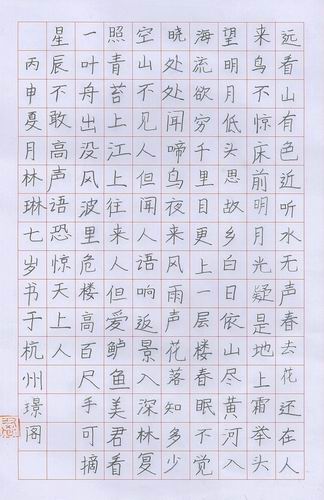 远看山有色近听水无声春去花还在人
来鸟不惊床前明月光疑是地上霜举头
望明月低头思故乡白日依山尽黄河入
海流欲穷千里目更上一层楼春眠不觉
晓处处闻啼鸟夜来风雨声花落知多少
空山不见人但闻人语响返景入深林复
照青苔上江上往来人但爱鲈鱼美君看
一叶舟出没风波里危楼高百尺手可摘
星辰不敢高声语恐惊天上人
丙申夏月林琳七岁书于杭州璟阁